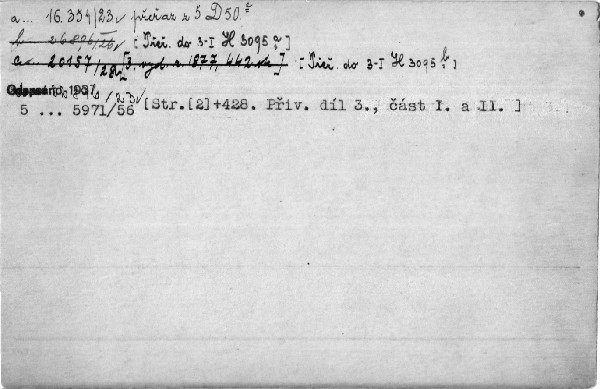 a... 16.354/23 přiřaz z 5 D 50
b 26806/26 [Přiř. do 3-I H 3095 a]
a 20157/28 [3. vyd. z 1877, 442 str.] [Přiř. do 3-I H 3095 b]
5 ... 5971/56 [Str.[2]+428. Přiv. díl 3., část I. a II. ]